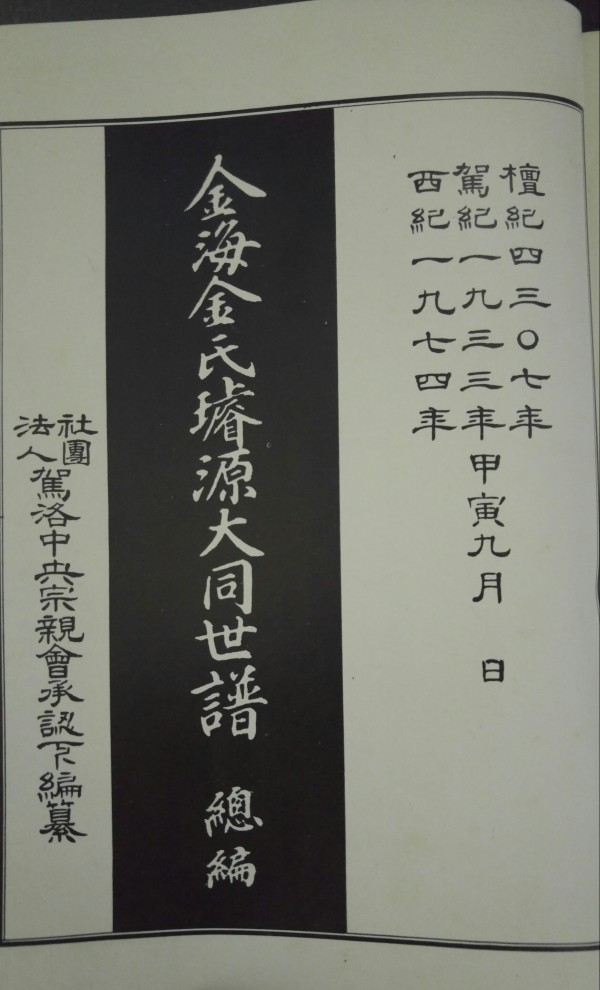 檀紀四三〇七年
駕紀一九三三年甲寅九月 日
西紀一九七四年
金海金氏璿源大同世譜 總編
社團
法人駕洛中央宗親會承認下編纂